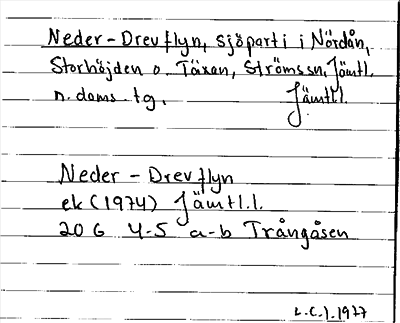 Neder-Drevflyn, sjöparti i Nördån,
Storhöjden o. Täxan, Strömssn, Jämtl.
n. doms.tg. Jämtl.l.
Neder - Drevflyn
ek (1974) Jämtl.l.
20 G 4-5 a-b Trångåsen
L.C.J. 1977